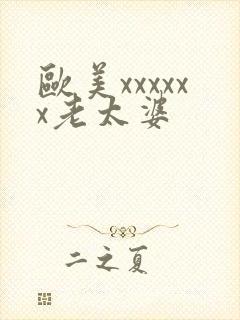 歐美xxxxx
x老太婆
二之夏